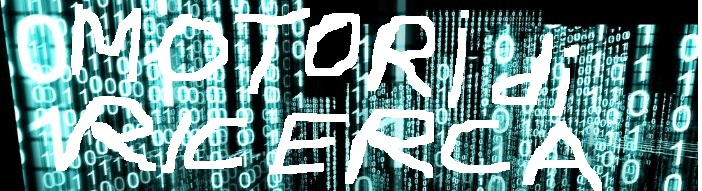 MOTORI di
RICERCA